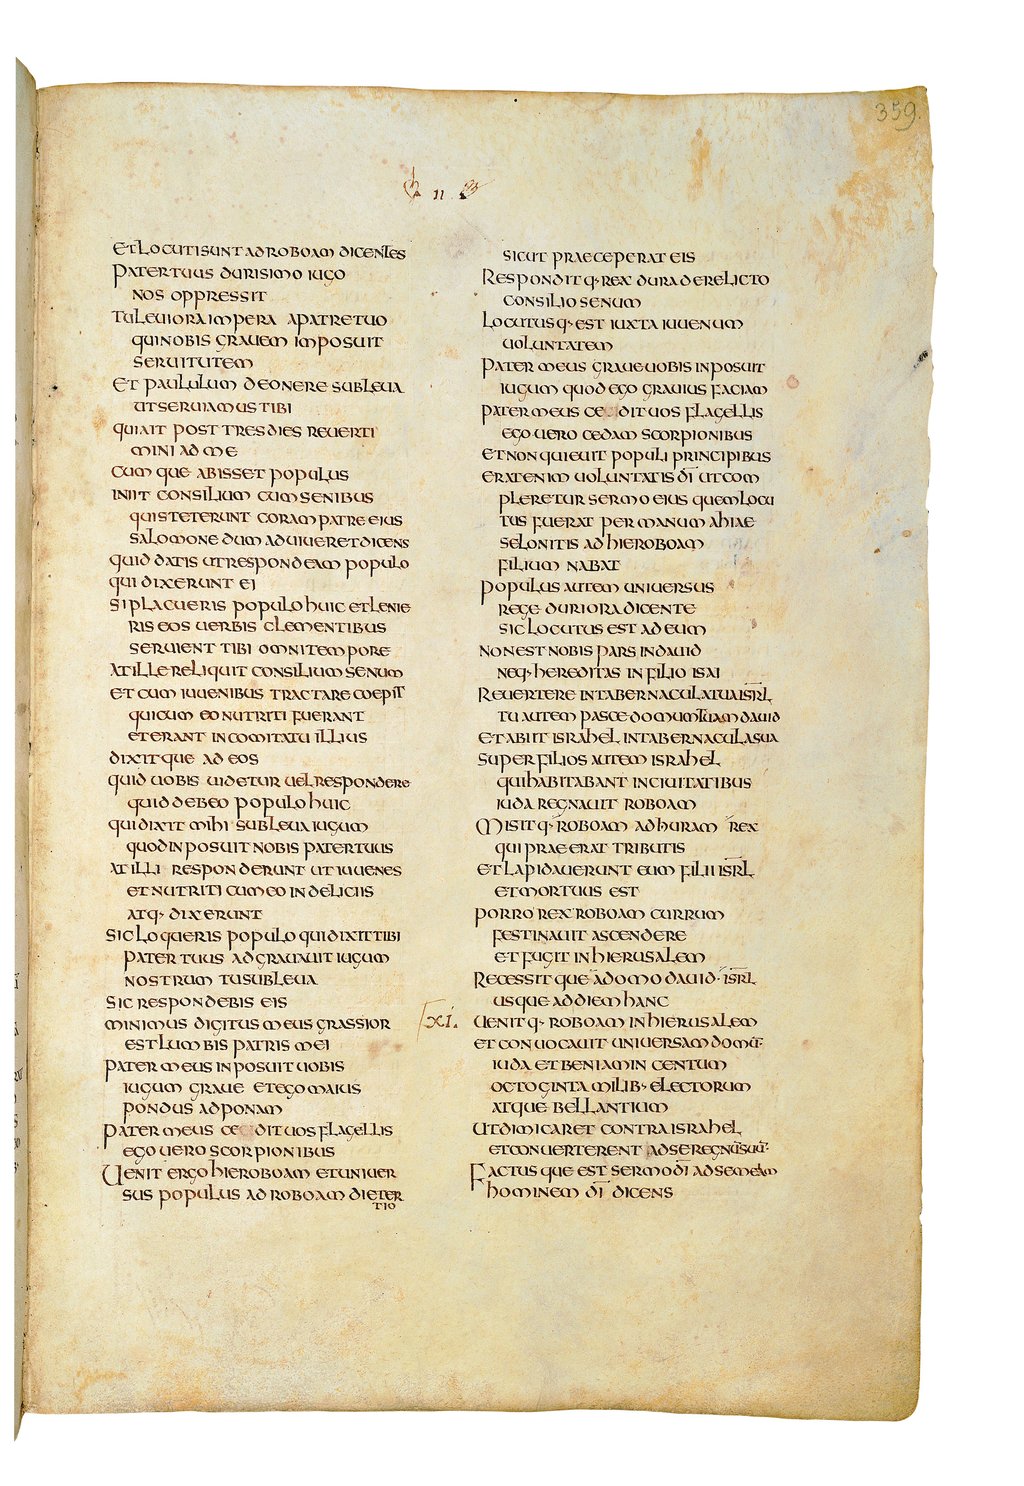 359.
II
ET LOCUTI SUNT AD ROBOAM DICENTES
PATER TUUS DURISIMO IUGO
NOS OPPRESSIT
TU LEUIORA IMPERA A PATRE TUO
QUI NOBIS GRAUEM IMPOSUIT
SERUITUTEM
ET PAULULUM DE ONERE SUBLEUA
UT SERUIAMUS TIBI
QUI AIT POST TRES DIES REUERTI
MINI AD ME
CUMQUE ABISSET POPULUS
INIIT CONSILIUM CUM SENIBUS
QUI STETERUNT CORAM PATRE EIUS
SALOMONE DUM ADUIUERET DICENS
QUID DATIS UT RESPONDEAM POPULO
QUI DIXERUNT EI
SI PLACUERIS POPULO HUIC ET LENIE
RIS EOS UERBIS CLEMENTIBUS
SERUIENT TIBI OMNI TEMPORE
AT ILLE RELIQUIT CONSILIUM SENUM
ET CUM IUUENIBUS TRACTARE COEPIT
QUI CUM EO NUTRITI FUERANT
ET ERANT IN COMITATU ILLIUS
DIXITQUE AD EOS
QUID UOBIS UIDETUR UEL RESPONDERE
QUID DEBEO POPULO HUIC
QUI DIXIT MIHI SUBLEUA IUGUM
QUOD INPOSUIT NOBIS PATER TUUS
AT ILLI RESPONDERUNT UT IUUENES
ET NUTRITI CUM EO IN DELICIIS
ATQ· DIXERUNT
SIC LOQUERIS POPULO QUI DIXIT TIBI
PATER TUUS ADGRAUAUIT IUGUM
NOSTRUM TU SUBLEUA
SIC RESPONDEBIS EIS
MINIMUS DIGITUS MEUS GRASSIOR
EST LUMBIS PATRIS MEI
PATER MEUS INPOSUIT UOBIS
IUGUM GRAUE ET EGO MAIUS
PONDUS ADPONAM
PATER MEUS CE DIT UOS FLAGELLIS
EGO UERO SCORPIONIBUS
UENIT ERGO HIEROBOAM ET UNIUER
SUS POPULUS AD ROBOAM DIE TER
TIO
SICUT PRAECEPERAT EIS
RESPONDITQ· REX DURA DERELICTO
CONSILIO SENUM
LOCUTUSQ· EST IUXTA IUUENUM
UOLUNTATEM
PATER MEUS GRAUE UOBIS INPOSUIT
IUGUM QUOD EGO GRAUIUS FACIAM
PATER MEUS CE DIT UOS FLAGELLIS
EGO UERO CEDAM SCORPIONIBUS
ET NON QUIEUIT POPULI PRINCIPIBUS
ERAT ENIM UOLUNTATIS D̅I̅ UT COM
PLERETUR SERMO EIUS QUEM LOCU
TUS FUERAT PER MANUM AHIAE
SELONITIS AD HIEROBOAM
FILIUM NABAT
POPULUS AUTEM UNIUERSUS
REGE DURIORA DICENTE
SIC LOCUTUS EST AD EUM
NON EST NOBIS PARS IN DAUID
NEQ· HEREDITAS IN FILIO ISAI
REUERTERE IN TABERNACULA TUA IS̅R̅L̅
TU AUTEM PASCE DOMUM TUAM DAUID
ET ABIIT ISRAHEL IN TABERNACULA SUA
SUPER FILIOS AUTEM ISRAHEL
QUI HABITABANT IN CIUITATIBUS
IUDA REGNAUIT ROBOAM
MISITQ· ROBOAM ADHURAM REX
QUI PRAEERAT TRIBUTIS
ET LAPIDAUERUNT EUM FILII IS̅R̅L̅
ET MORTUUS EST
PORRO REX ROBOAM CURRUM
FESTINAUIT ASCENDERE
ET FUGIT IN HIERUSALEM
RECESSITQUE A DOMO DAUID· IS̅R̅L̅
USQUE AD DIEM HANC
XI. UENITQ· ROBOAM IN HIERUSALEM
ET CONUOCAUIT UNIUERSAM DOMU̅
IUDA ET BENIAMIN CENTUM
OCTOGINTA MILIB· ELECTORUM
ATQUE BELLANTIUM
UT DIMICARET CONTRA ISRAHEL
ET CONUERTERENT AD SE REGNU̅ SUU̅
FACTUSQUE EST SERMO D̅I̅ AD SEMEIAM
HOMINEM D̅I̅ DICENS